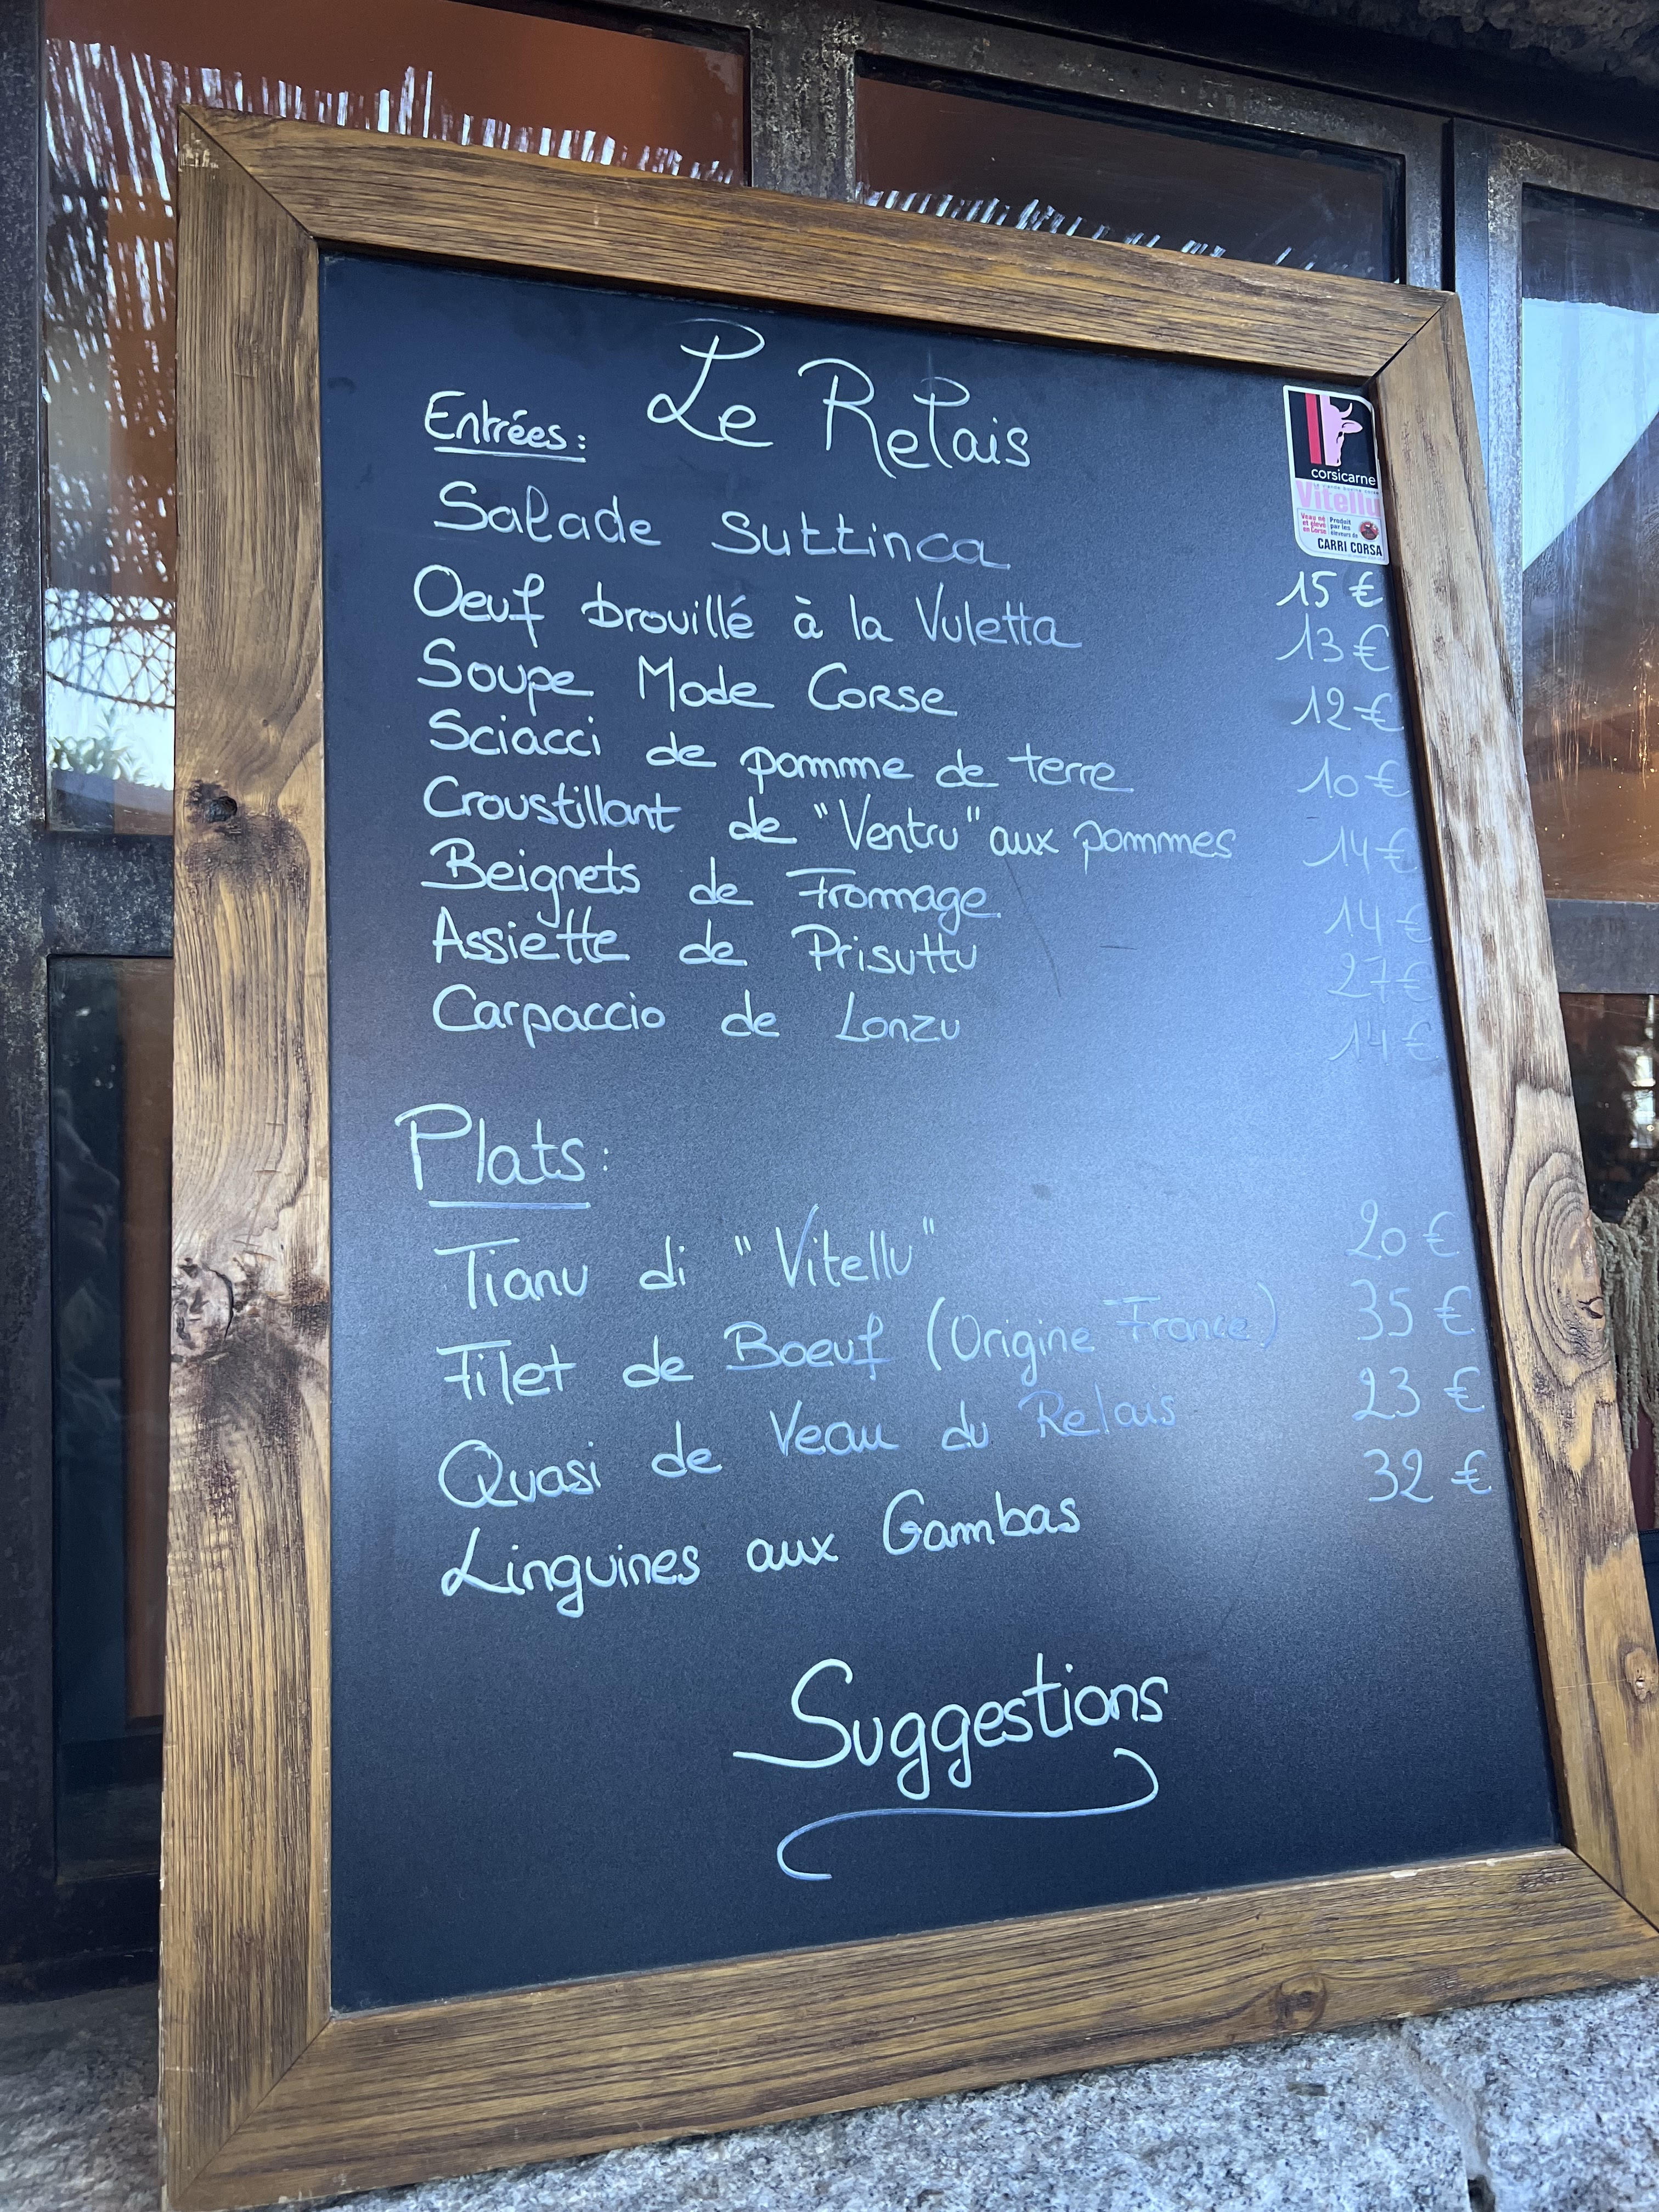 Le Relais
Entrées:
Salade Suttinca 15 €
Oeuf brouillé à la Vuletta 13 €
Soupe Mode Corse 12 €
Sciacci de pomme de terre 10 €
Croustillant de "Ventru" aux pommes 14 €
Beignets de Fromage 14 €
Assiette de Prisuttu 27 €
Carpaccio de Lonzu 14 €
Plats:
Tianu di "Vitellu" 20 €
Filet de Boeuf (Origine France) 35 €
Quasi de Veau du Relais 23 €
Linguines aux Gambas 32 €
Suggestions
corsicarne
Vitellu
Veau né
et élevé
en Corse
Produit
par les
éleveurs de
CARRI CORSA